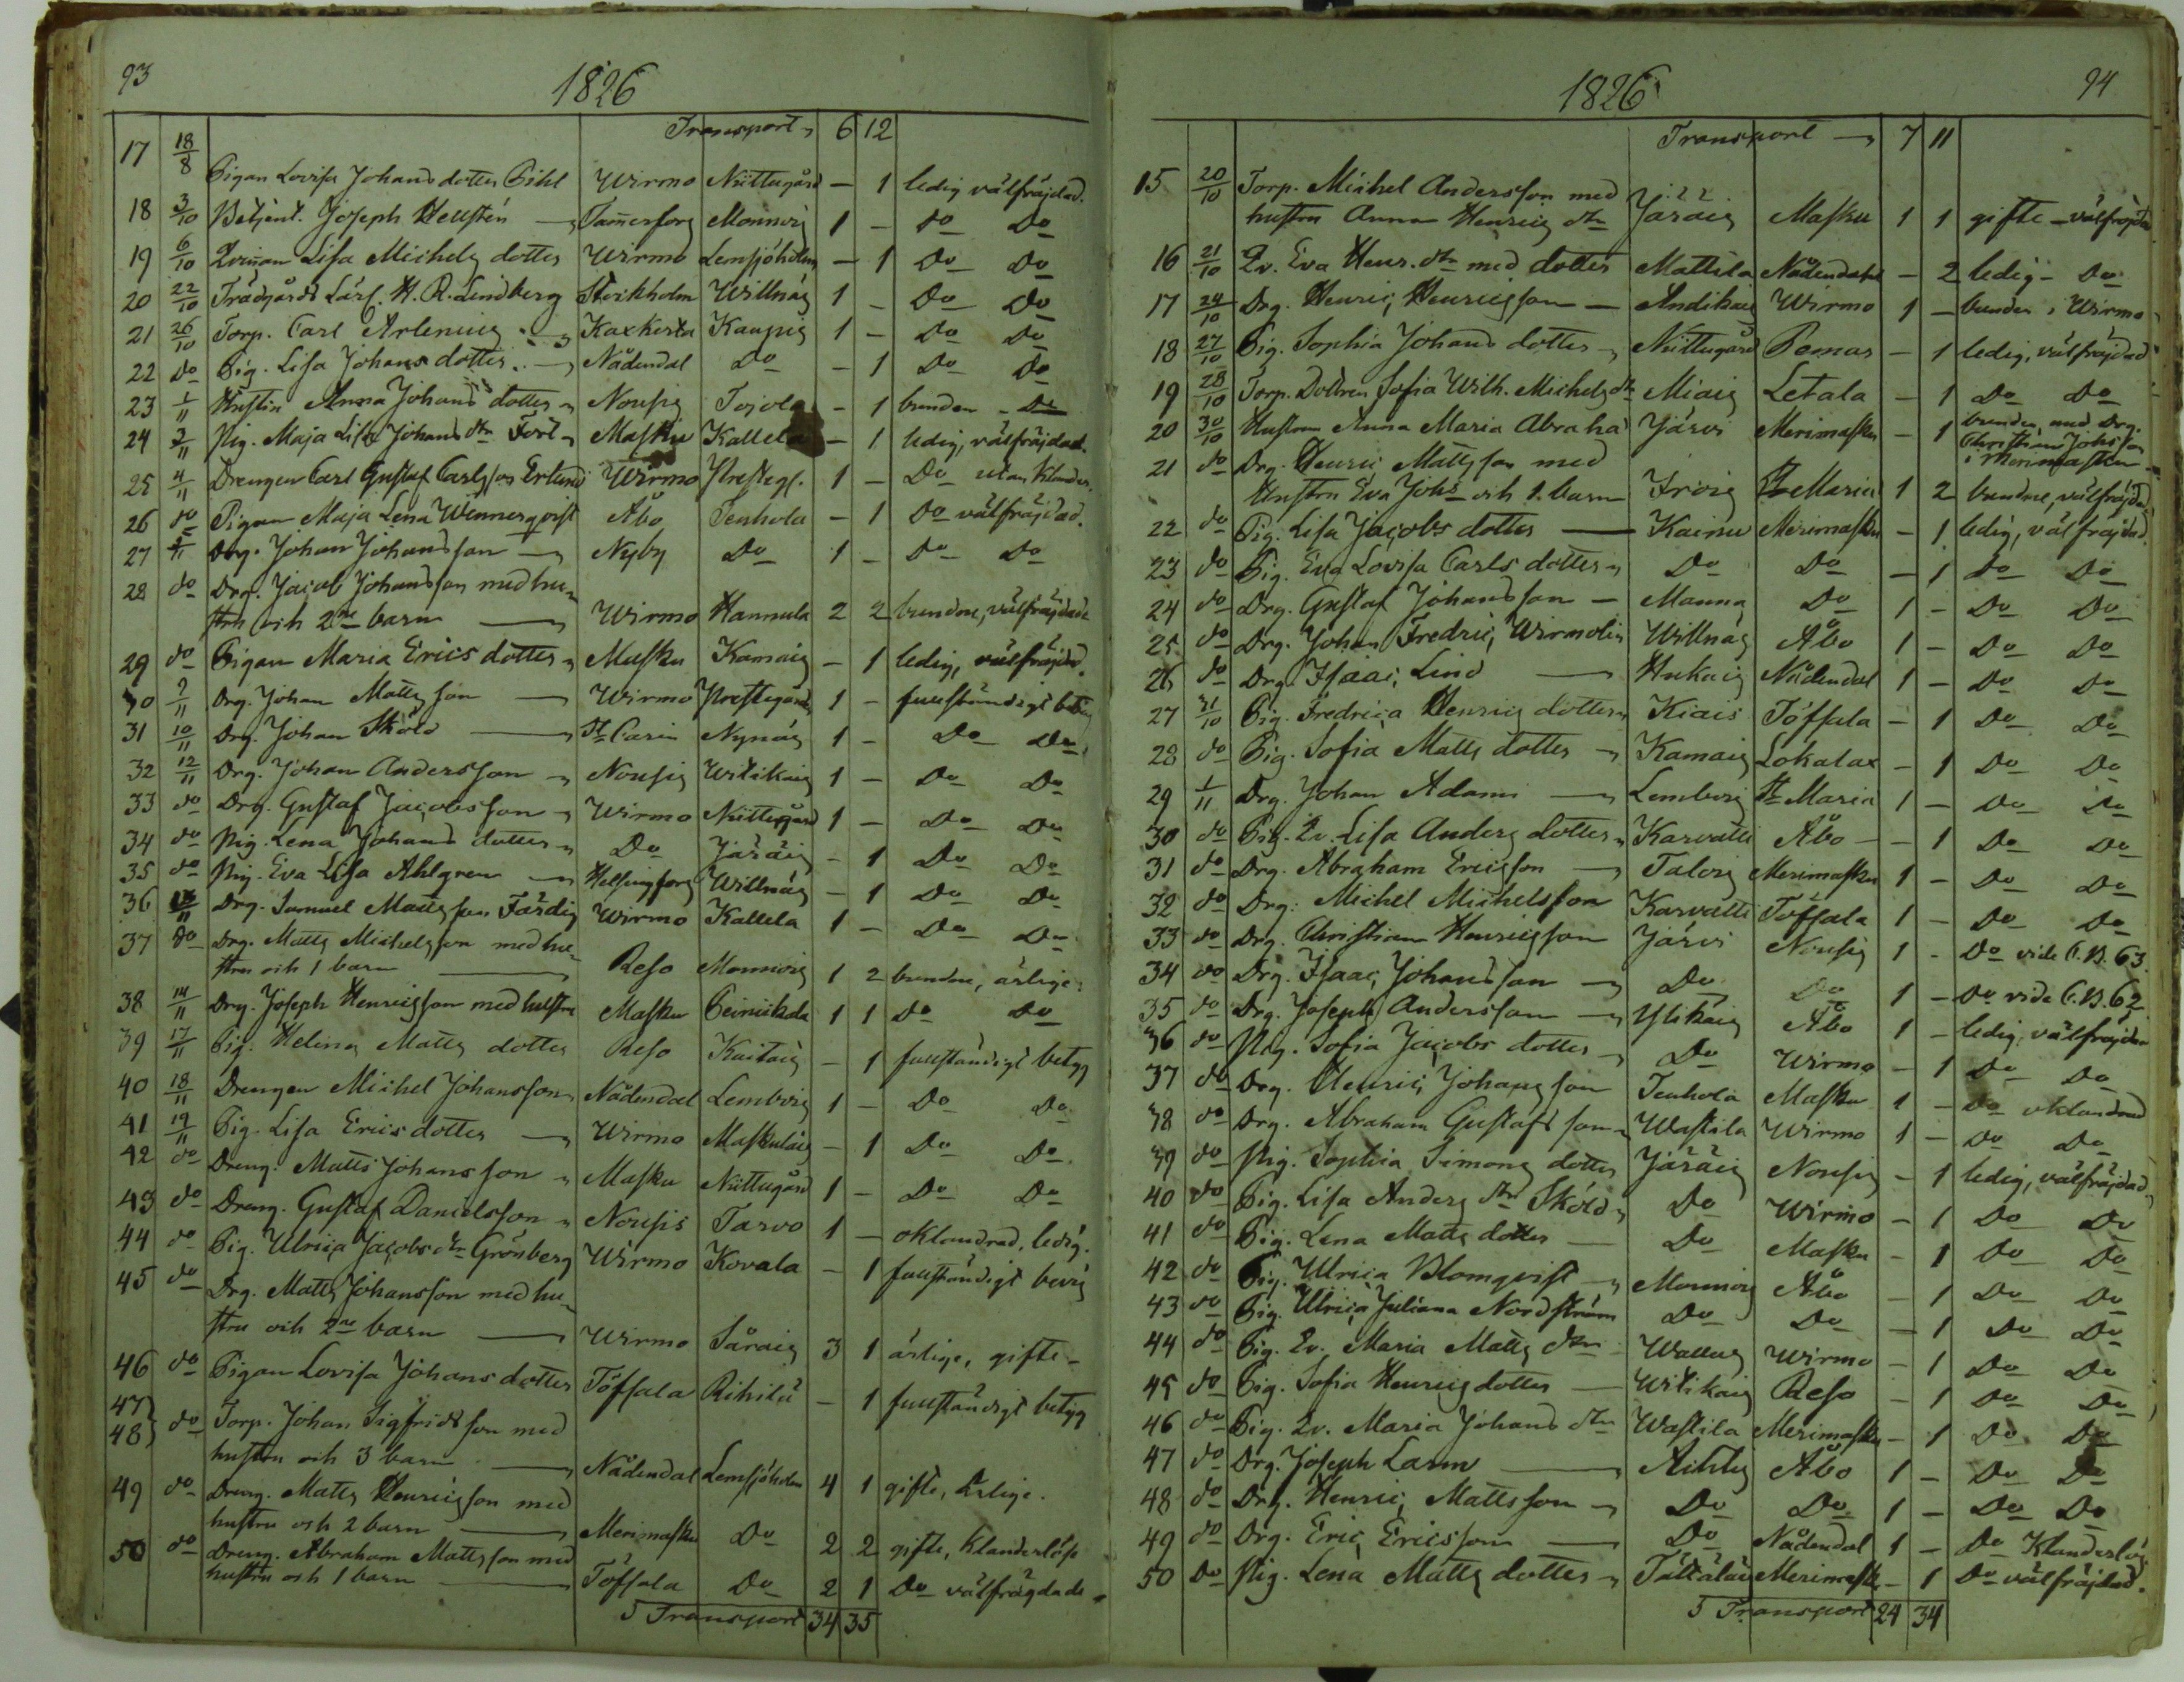 93
1826
Transport 6 12
17 18/8 Pigan Lovisa Johansdotter Pihl Wirmo Niittugård – 1 ledig välfräjdad.
18 3/10 Betjent. Joseph Hellstén Tam̄erfors Monnois 1 – do Do
19 6/10 Qvin̄an Lisa Michels dotter Wirmo Lemsjöholm – 1 Do Do
20 22/10 Trädgårds Lärl. H. R. Lindberg Stockholm Willnäs 1 – Do Do
21 26/10 Torp. Carl Arlenius Kaxkerta Kaupis 1 – Do Do
22 Do Pig. Lisa Johans dotter Nådendal Do – 1 Do Do
23 1/11 Hustin Anna Johans dotter Nousis Tojola – 1 bunden – Do
24 3/11 Pig. Maja Lisa Johans dtr Fort Masku Kallela – 1 ledig, välfräjdad.
25 4/11 Drengen Carl Gustaf Carlsson Erlund Wirmo Presteg. 1 – Do utan klander.
26 do Pigan Maja Lena Wennerqvist Åbo Tenhola – 1 Do välfräjdad.
27 /11 Drg. Johan Johansson Nyby Do 1 – Do Do
28 do Drg. Jacob Johansson med hu-
stru och 2ne barn Wirmo Hannula 2 2 bundne, välfräjdade
29 do Pigan Maria Erics dotter Masku Kamais – 1 ledig, välfräjdad.
30 9/11 Drg. Johan Mattsson Wirmo Prestegård 1 – fullständigt betyg
31 10/11 Drg. Johan Sköld St Carin Nynäs 1 – Do Do
32 12/11 Drg. Johan Andersson Nousis Wilikais 1 – Do Do
33 do Drg. Gustaf Jacobsson Wirmo Niittugård 1 – Do Do
34 do Pig. Lena Johans dotter Do Järäis – 1 Do Do
35 do Pig. Eva Lisa Ahlgren Helsingfors Willnäs – 1 Do Do
36 /11 Drg. Samuel Mattsson Färdig Wirmo Kallela 1 – Do Do
37 do Drg. Matts Michelsson med hu-
stru och 1 barn Reso Monnois 1 2 bundne, ärlige.
38 14/11 Drg. Joseph Henricsson med hustru Masku Peiniikala 1 1 Do Do
39 17/11 Pig. Helena Matts dotter Reso Kaitais – 1 fullständigt betyg
40 18/11 Drengen Michel Johansson Nådendal Lembois 1 – Do Do
41 19/11 Pig. Lisa Erics dotter Wirmo Maskulais – 1 Do Do
42 do Dreng. Matts Johansson Masku Niittugård 1 – Do Do
43 do Dreng. Gustaf Danielsson Nousis Tarvo 1 – oklandrad, ledig.
44 do Pig. Ulrica Jacobs dtr Grönberg Wirmo Kovala – 1 fullständigt bevis
45 do Drg. Matts Johansson med hu-
stru och 2ne barn Wirmo Säräis 3 1 ärlige, gifte –
46 do Pigan Lovisa Johans dotter Töfsala Rihilä – 1 fullständigt betyg
47
48 do Torp. Johan Sigfridsson med
hustru och 3 barn Nådendal Lemsjöholm 4 1 gifte, ärlige.
49 do Dreng. Matts Henricsson med
hustru och 2 barn Merimasku Do 2 2 gifte, klanderlöse
50 do Dreng. Abraham Mattsson med
hustru och 1 barn Töfsala Do 2 1 Do välfrägdade
Transport 34 35
94
1826
Transport 7 11
15 20/10 Torp. Michel Andersson med
hustru Anna Henrics dtr Järäis Masku 1 1 gifte – välfräjdade
16 21/10 Qv. Eva Henr. dtr med dotter Mattila Nådendahl – 2 ledig – Do
17 24/10 Drg. Henric Henricsson Andikais Wirmo 1 – bunden i Wirmo
18 27/10 Pig. Sophia Johans dotter Niittugård Pemar – 1 ledig, välfräjdad
19 28/10 Torp. Dottren Sofia Wilh. Michels dtr Miais Letala – 1 Do Do
20 30/10 Hustrun Anna Maria Abraha Järvi Merimasku – 1 bunden, med Drg. Christian Johsson i Merimasku
21 do Drg. Henric Mattsson med
Hustru Eva Johs och 1. barn Irois St Maria 1 2 bundne, välfräjdad
22 do Pig. Lisa Jacobs dotter Kainu Merimasku – 1 ledig, välfräjdad.
23 do Pig. Eva Lovisa Carls dotter Do Do – 1 do Do
24 do Drg. Gustaf Johansson Manna Do 1 – Do Do
25 do Drg. Johan Fredric Wirmolin Willnäs Åbo 1 – Do Do
26 do Drg. Isaac Lind Hukais Nådendal 1 – Do Do
27 31/10 Pig. Fredrica Henrics dotter Kiais Töffala – 1 Do Do
28 do Pig. Sofia Matts dotter Kamais Lokalax – 1 Do Do
29 1/11 Drg. Johan Adam Lembois St Maria 1 – Do Do
30 do Pig. Qv. Lisa Anders dotter Karvatti Åbo – 1 Do Do
31 do Drg. Abraham Ericsson Talois Merimasku 1 – Do Do
32 do Drg. Michel Michelsson Karvatti Töffala 1 – Do Do
33 do Drg. Christian Henricsson Järvi Nousis 1 – Do vide C.B. 63.
34 do Drg. Isaac Johansson Do Do 1 – Do vide C.B. 62
35 do Drg. Joseph Andersson Ylikäis Åbo 1 – ledig, välfräjdad
36 do Pig. Sofia Jacobs dotter Do Wirmo – 1 Do Do
37 do Drg. Henric Johansson Tenhola Masku 1 – Do oklandrad
38 do Drg. Abraham Gustafsson Wastila Wirmo 1 – Do Do
39 do Pig. Sophia Simons dotter Järäis Nousis – 1 ledig, välfräjdad,
40 do Pig. Lisa Anders dtr Sköld Do Wirmo – 1 Do Do
41 do Pig. Lena Matts dotter Do Masku – 1 Do Do
42 do Pig. Ulrica Blomqvist Monnois Åbo – 1 Do Do
43 do Pig. Ulrica Juliana Nordström Do Do – 1 Do Do
44 do Pig. Qv. Maria Matts dtr Wallus Wirmo – 1 Do Do
45 do Pig. Sofia Henrics dotter Wilikais Reso – 1 Do Do
46 do Pig. Qv. Maria Johans dtr Wastila Merimasku – 1 Do Do
47 do Drg. Joseph Larm Aihtis Åbo 1 – Do Do
48 do Drg. Henric Mattsson Do Do 1 – Do Do
49 do Drg. Eric Ericsson Do Nådendal 1 – Do Klanderlös
50 Do Pig. Lena Matts dotter Tättäläis Merimasku – 1 Do välfräjdad.
Transport 24 34